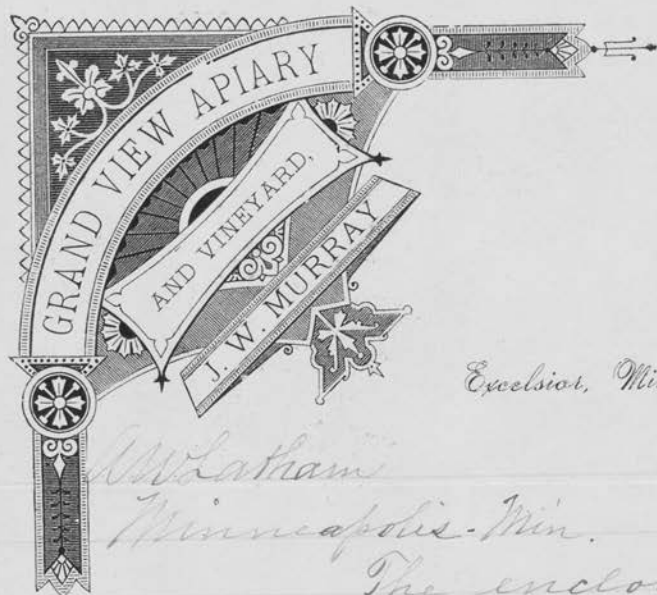 GRAND VIEW APIARY
AND VINEYARD,
J. W. MURRAY
Excelsior,
A W Latham
Minneapolis - Min.
The